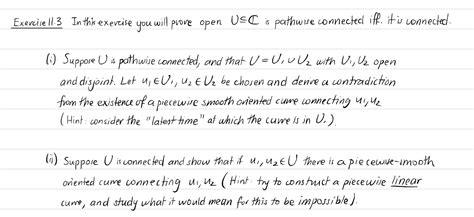 Exercise 11.3 In this exercise you will prove open U⊆ℂ is pathwise connected iff. it is connected.
(i) Suppose U is pathwise connected, and that U = U₁ ∪ U₂ with U₁, U₂ open
and disjoint. Let u₁ ∈ U₁, u₂ ∈ U₂ be chosen and derive a contradiction
from the existence of a piecewise smooth oriented curve connecting u₁, u₂
(Hint: consider the "latest time" at which the curve is in U₁).
(ii) Suppose U is connected and show that if u₁, u₂ ∈ U there is a piecewise-smooth
oriented curve connecting u₁, u₂ (Hint: try to construct a piecewise linear
curve, and study what it would mean for this to be impossible).